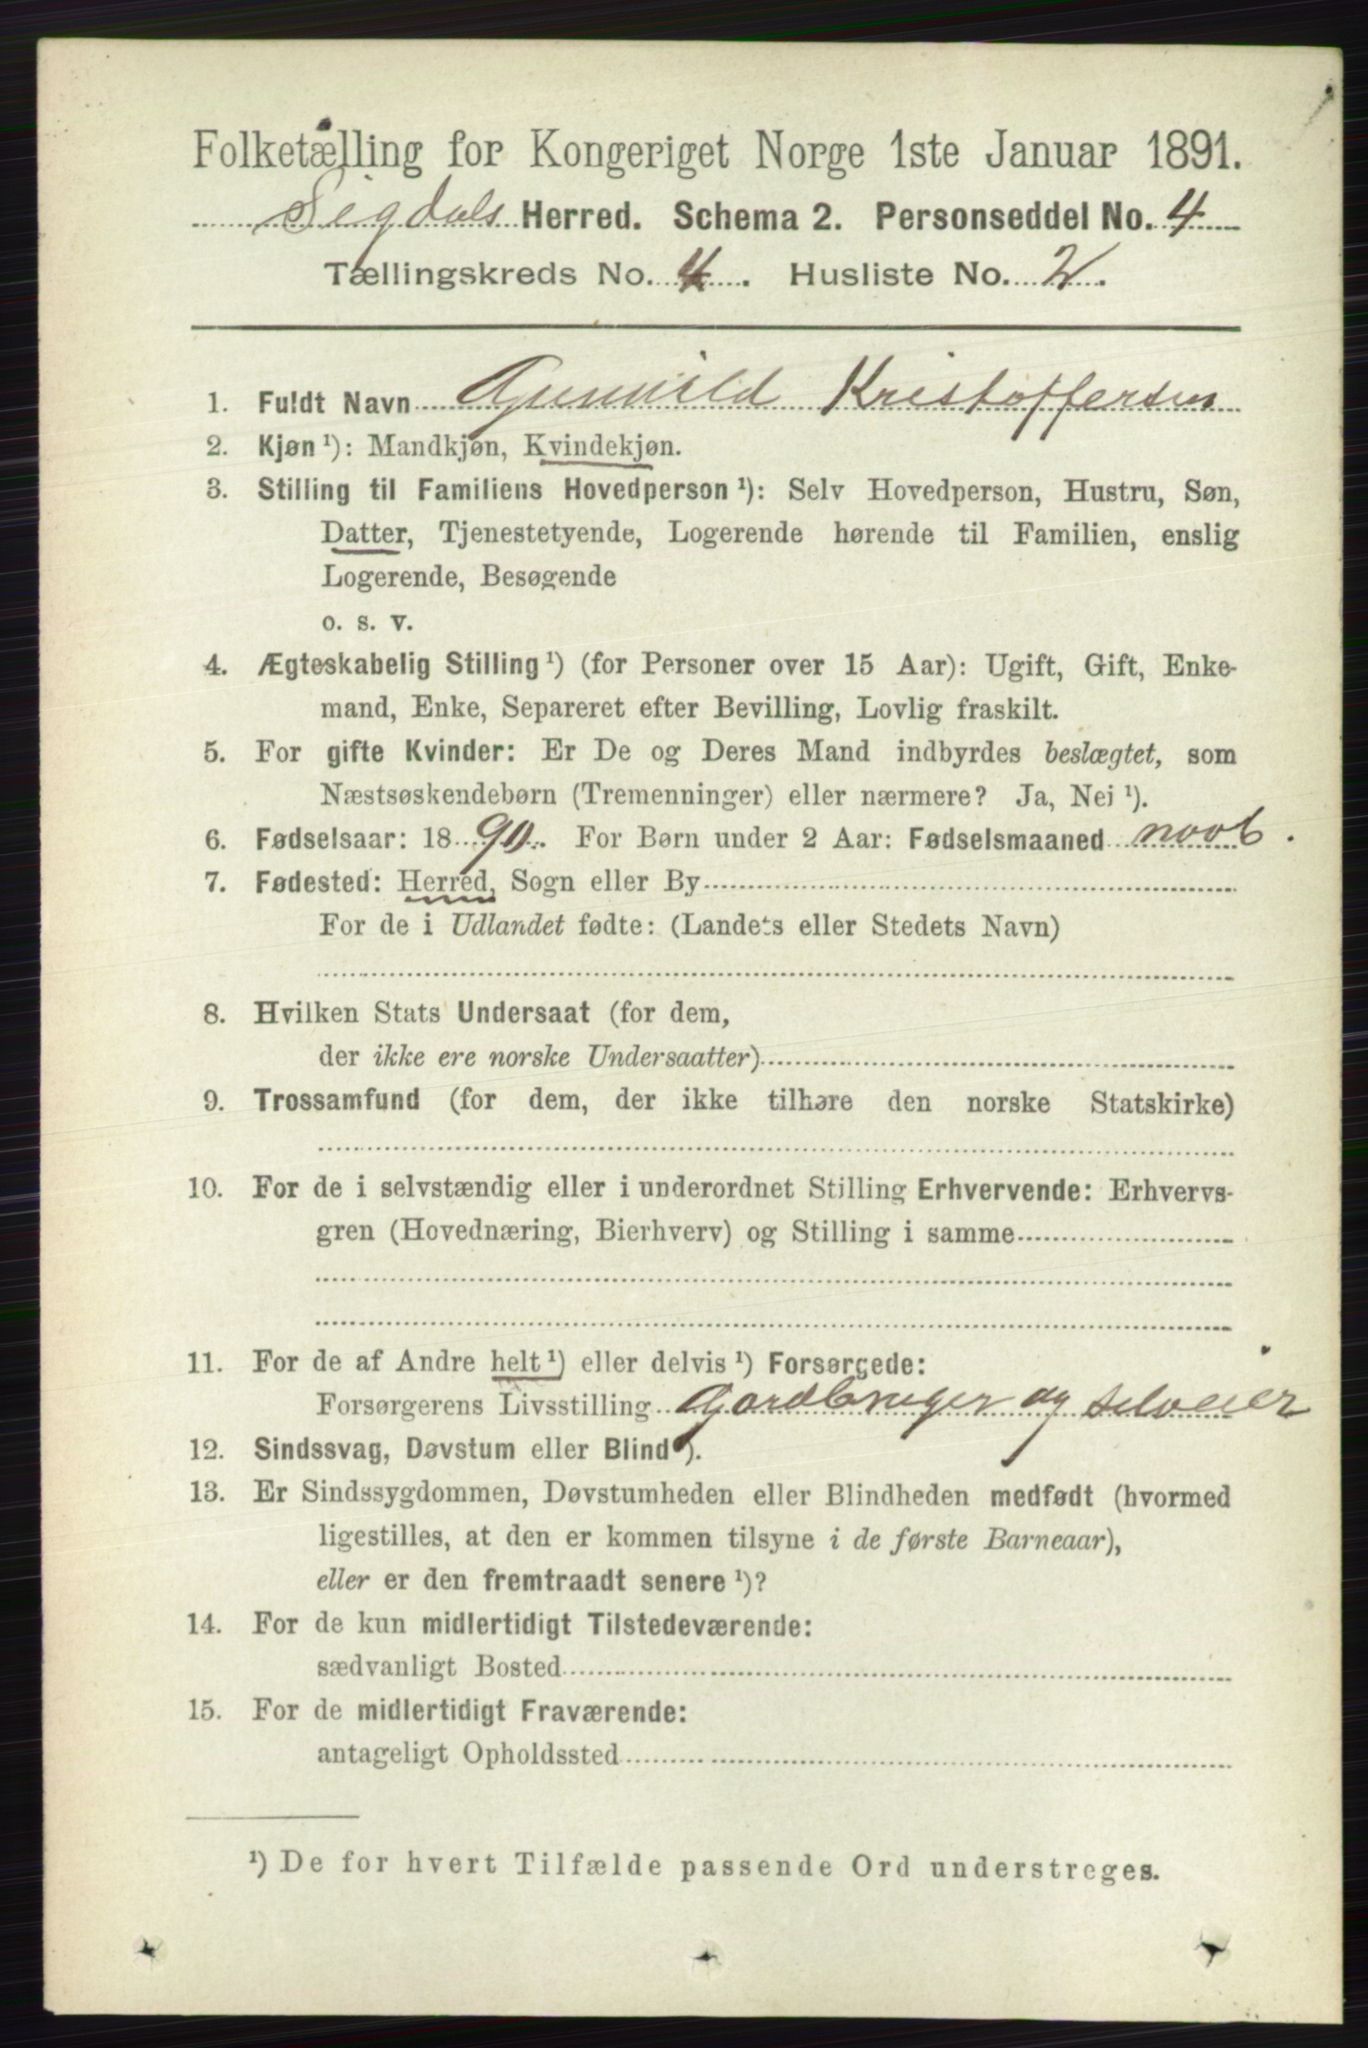 Folketælling for Kongeriget Norge 1ste Januar 1891.
Sigdals Herred. Schema 2. Personseddel No. 4
Tællingskreds No. 4. Husliste No. 2.
1. Fuldt Navn Gunnild Kristoffersen
2. Kjøn ¹): Mandkjøn, Kvindekjøn.
3. Stilling til Familiens Hovedperson ¹): Selv Hovedperson, Hustru, Søn,
Datter, Tjenestetyende, Logerende hørende til Familien, enslig
Logerende, Besøgende
o. s. v.
4. Ægteskabelig Stilling ¹) (for Personer over 15 Aar): Ugift, Gift, Enke-
mand, Enke, Separeret efter Bevilling, Lovlig fraskilt.
5. For gifte Kvinder: Er De og Deres Mand indbyrdes beslægtet, som
Næstsøskendebørn (Tremenninger) eller nærmere? Ja, Nei ¹).
6. Fødselsaar: 1890. For Børn under 2 Aar: Fødselsmaaned novb.
7. Fødested: Herred, Sogn eller By
For de i Udlandet fødte: (Landets eller Stedets Navn)
8. Hvilken Stats Undersaat (for dem,
der ikke ere norske Undersaatter)
9. Trossamfund (for dem, der ikke tilhøre den norske Statskirke)
10. For de i selvstændig eller i underordnet Stilling Erhvervende: Erhvervs-
gren (Hovednæring, Bierhverv) og Stilling i samme
11. For de af Andre helt ¹) eller delvis ¹) Forsørgede:
Forsørgerens Livsstilling Gardbruger og selveier
12. Sindssvag, Døvstum eller Blind ¹).
13. Er Sindssygdommen, Døvstumheden eller Blindheden medfødt (hvormed
ligestilles, at den er kommen tilsyne i de første Barneaar),
eller er den fremtraadt senere ¹)?
14. For de kun midlertidigt Tilstedeværende:
sædvanligt Bosted
15. For de midlertidigt Fraværende:
antageligt Opholdssted
¹) De for hvert Tilfælde passende Ord understreges.